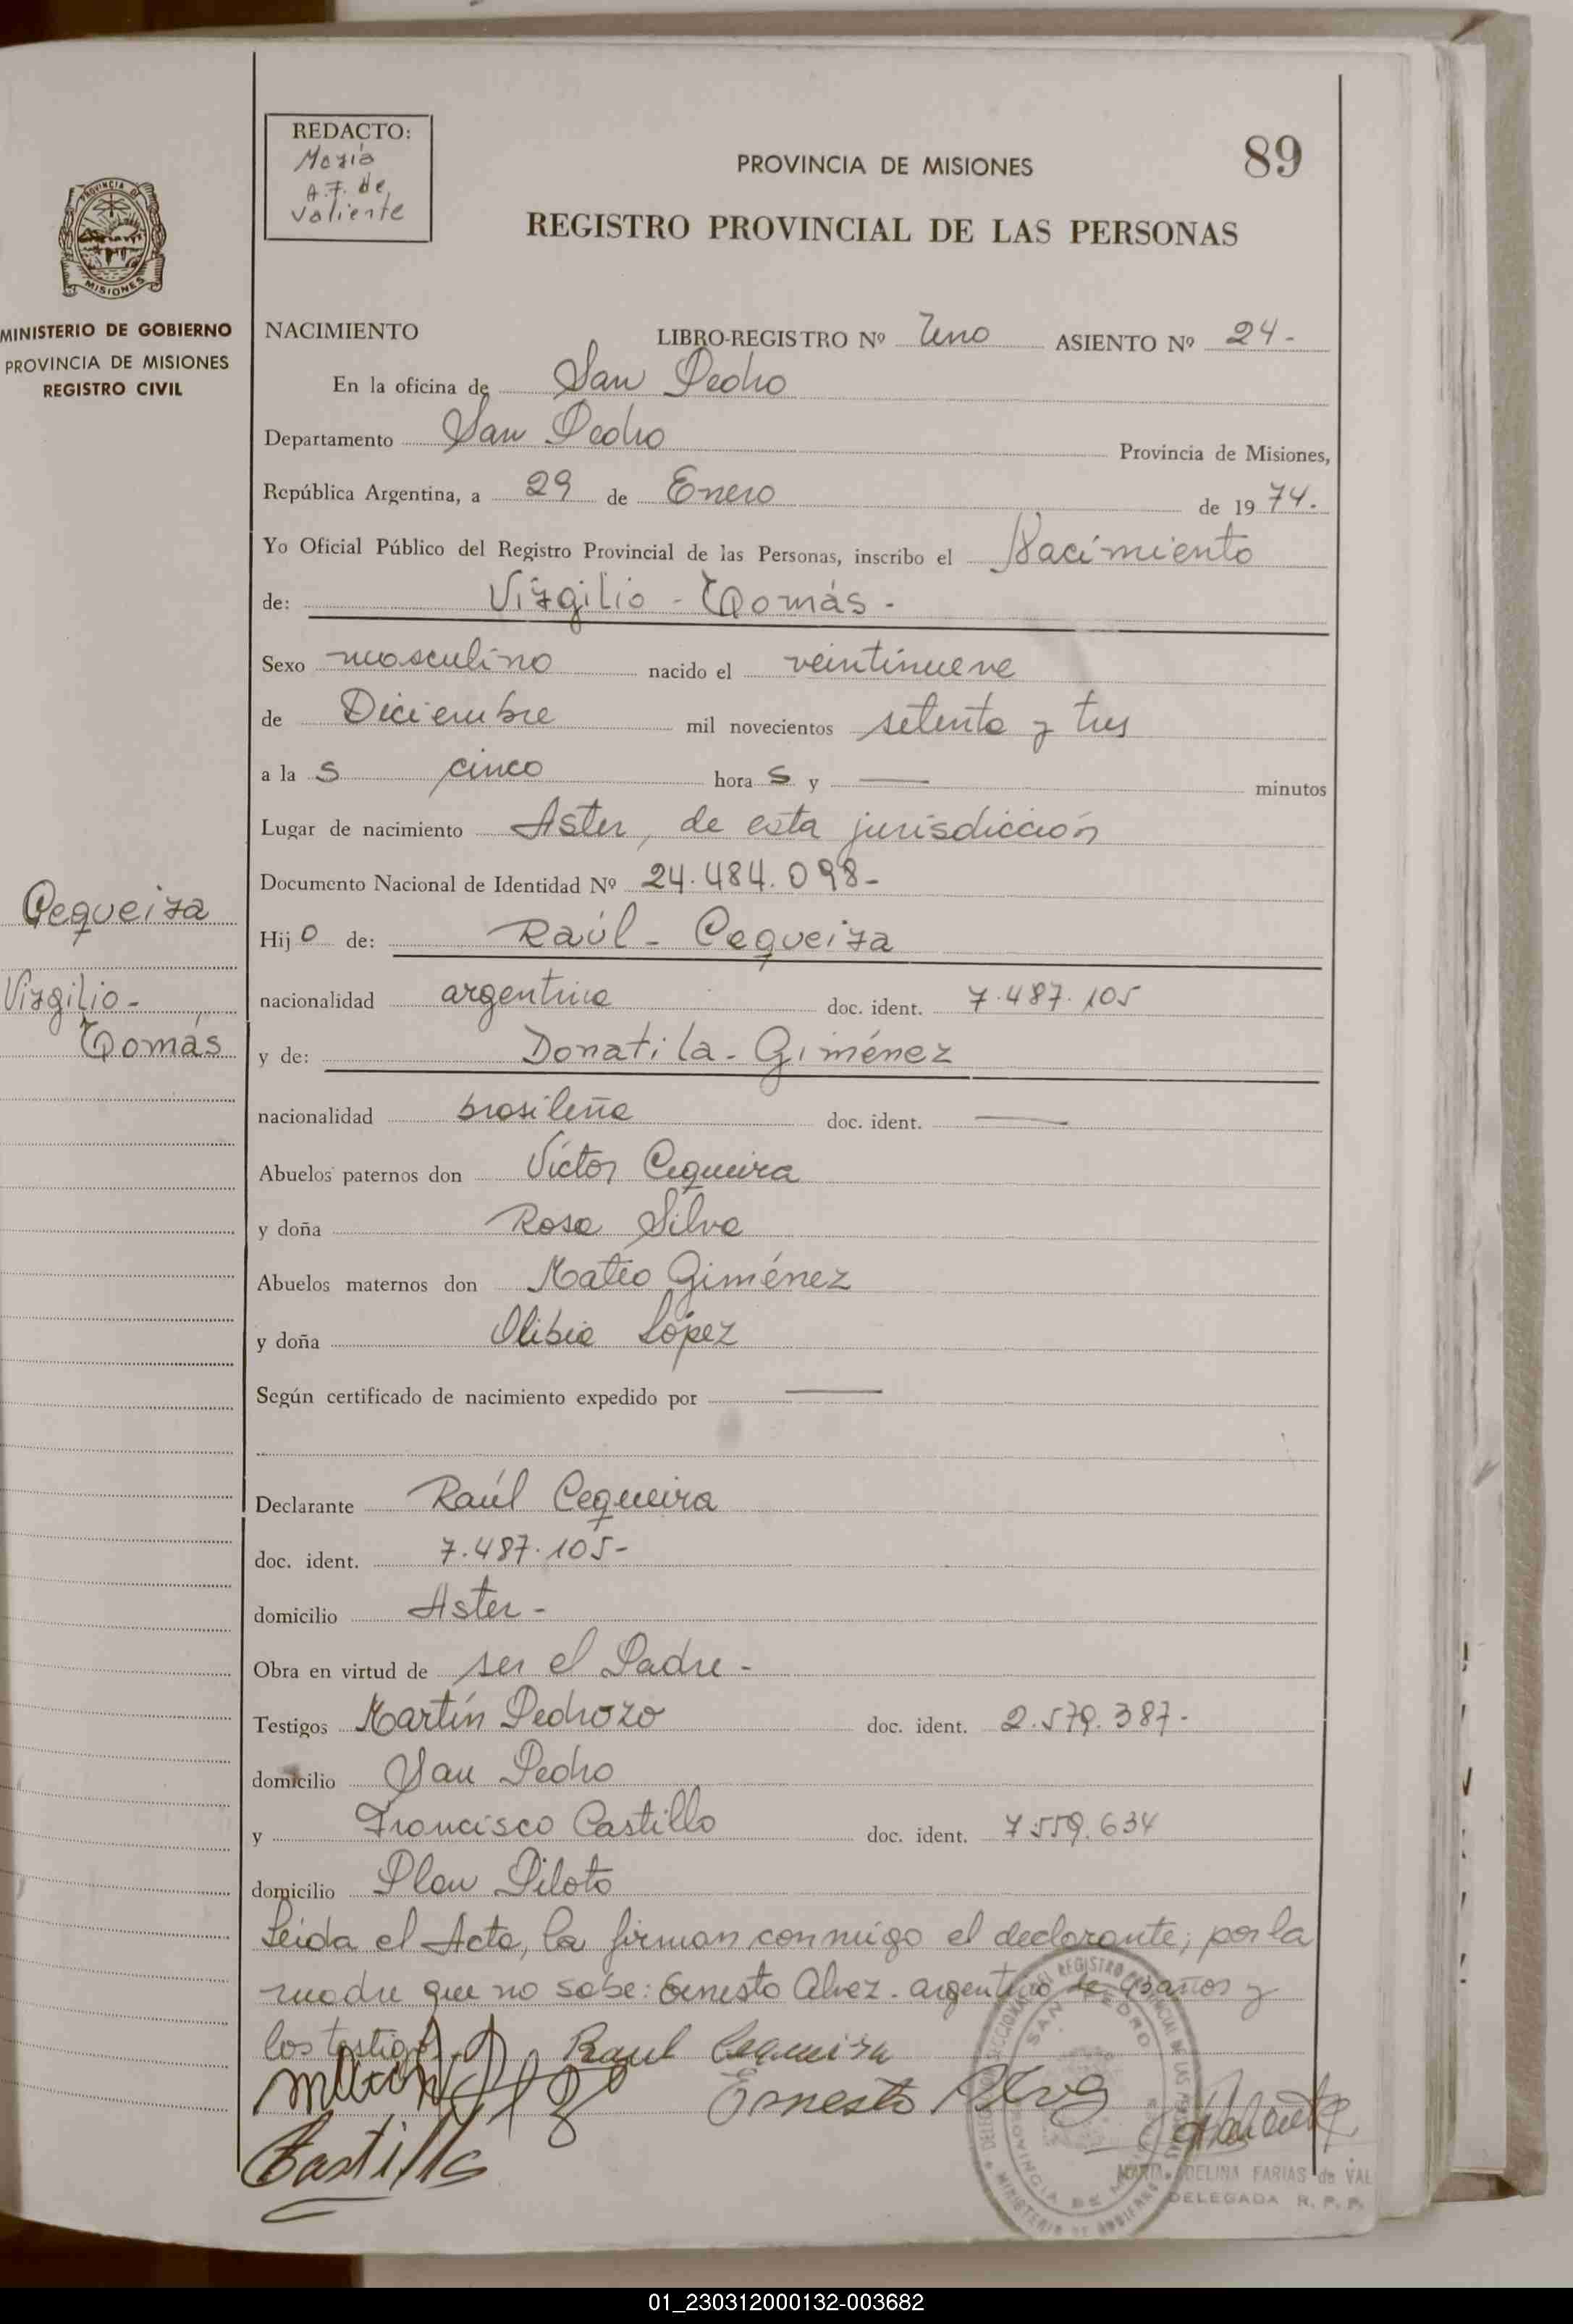 REDACTO:
María
A.F. de
Valiente
PROVINCIA DE MISIONES
89
REGISTRO PROVINCIAL DE LAS PERSONAS
PROVINCIA DE
MISIONES
MINISTERIO DE GOBIERNO
PROVINCIA DE MISIONES
REGISTRO CIVIL
NACIMIENTO LIBRO-REGISTRO Nº Uno ASIENTO Nº 24.-
En la oficina de San Pedro
Departamento San Pedro Provincia de Misiones,
República Argentina, a 29 de Enero de 1974.
Yo Oficial Público del Registro Provincial de las Personas, inscribo el Nacimiento
de: Virgilio - Tomás -
Sexo masculino nacido el veintinueve
de Diciembre mil novecientos setenta y tres
a la s cinco hora s y — minutos
Lugar de nacimiento Aster, de esta jurisdicción
Documento Nacional de Identidad Nº 24.484.098-
Cequeira
Hijo de: Raúl - Cequeira
Virgilio-
nacionalidad argentina doc. ident. 7.487.105
Tomás
y de: Donatila - Giménez
nacionalidad brasileña doc. ident. —
Abuelos paternos don Víctor Cequeira
y doña Rosa Silva
Abuelos maternos don Mateo Giménez
y doña Olibia López
Según certificado de nacimiento expedido por —
Declarante Raúl Cequeira
doc. ident. 7.487.105-
domicilio Aster-
Obra en virtud de ser el Padre-
Testigos Martín Pedrozo doc. ident. 2.579.387-
domicilio San Pedro
y Francisco Castillo doc. ident. 7.559.634
domicilio Plan Piloto
Leida el Acta, la firman conmigo el declarante; por la
madre que no sabe: Ernesto Alvez - argentino de años y
los testigos
Raul Cequeira
Ernesto Alves
Castillo
SAN PEDRO
PROVINCIA DE
MARIA ADELINA FARIAS de VAL
DELEGADA R. P. P.
01_230312000132-003682